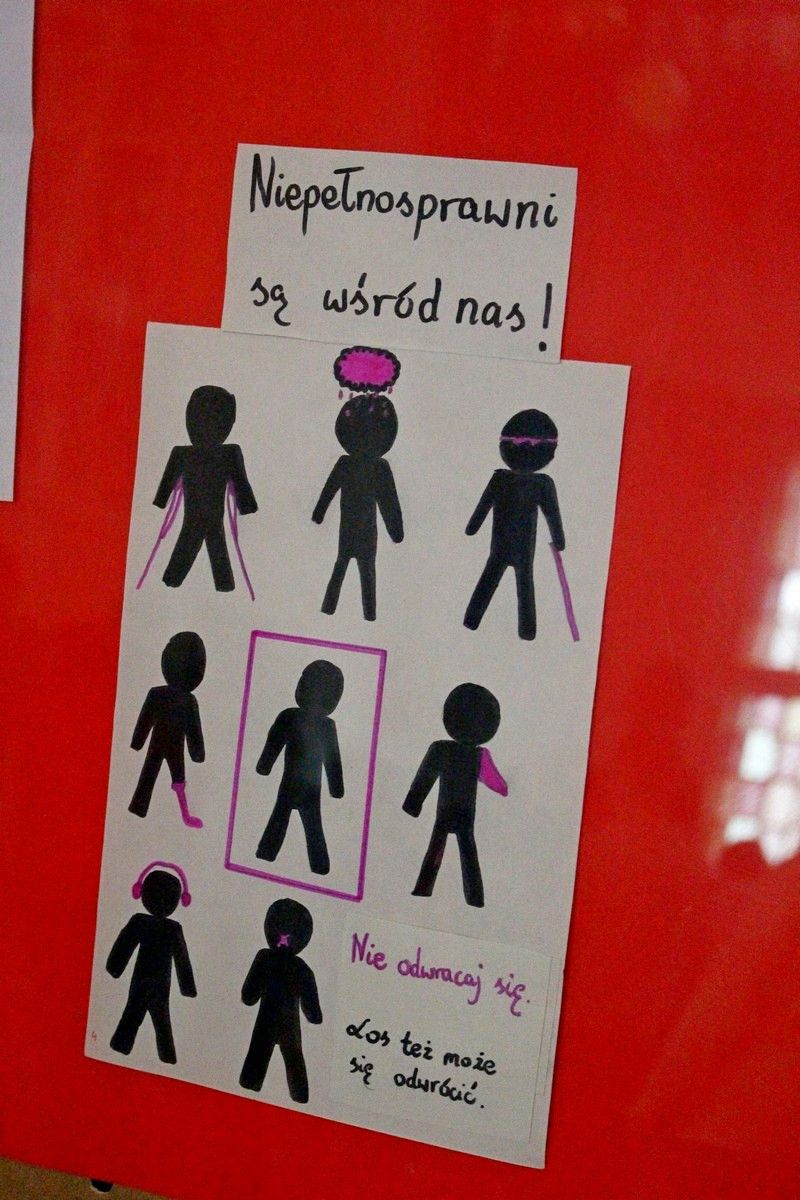 Niepełnosprawni
są wśród nas!
Nie odwracaj się.
Los też może
się odwrócić.